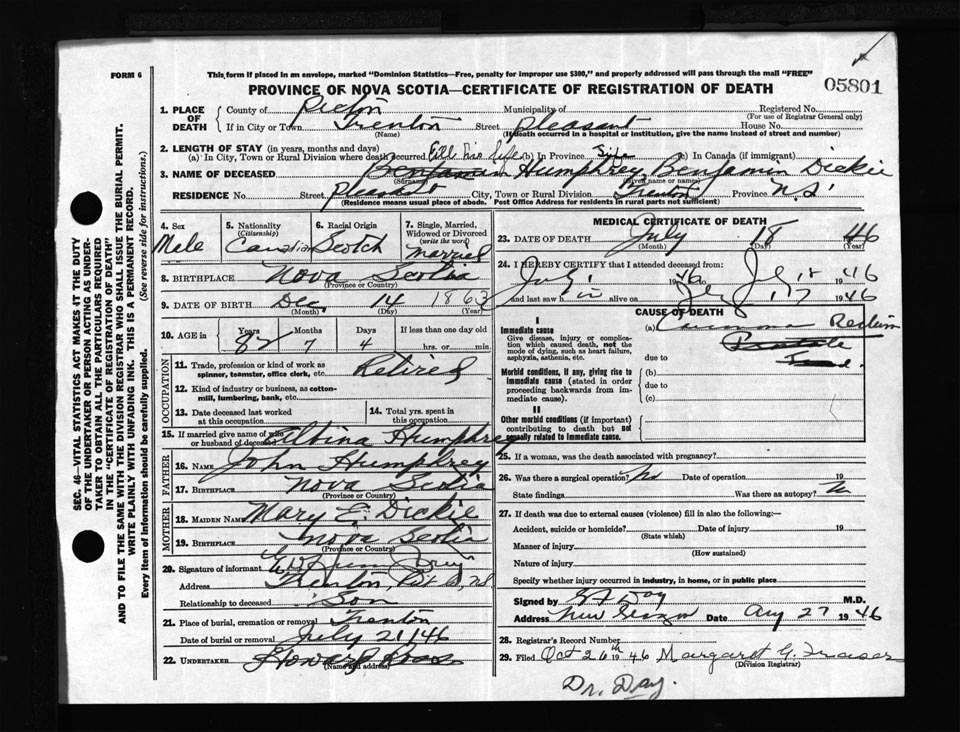 FORM 6
This form if placed in an envelope, marked "Dominion Statistics—Free, penalty for improper use $300," and properly addressed will pass through the mail "FREE"
PROVINCE OF NOVA SCOTIA—CERTIFICATE OF REGISTRATION OF DEATH
05801
SEC. 46—VITAL STATISTICS ACT MAKES IT THE DUTY
OF THE UNDERTAKER OR PERSON ACTING AS UNDER-
TAKER TO OBTAIN ALL THE PARTICULARS REQUIRED
IN THE "CERTIFICATE OF REGISTRATION OF DEATH"
AND TO FILE THE SAME WITH THE DIVISION REGISTRAR WHO SHALL ISSUE THE BURIAL PERMIT.
WRITE PLAINLY WITH UNFADING INK. THIS IS A PERMANENT RECORD.
Every item of information should be carefully supplied. (See reverse side for instructions.)
1. PLACE OF DEATH
County of Pictou Municipality of Registered No.
(For use of Registrar General only)
If in City or Town Trenton Street Pleasant House No.
(Name) (If death occurred in a hospital or institution, give the name instead of street and number)
2. LENGTH OF STAY (in years, months and days)
(a) In City, Town or Rural Division where death occurred All his life (b) In Province life (c) In Canada (if immigrant)
3. NAME OF DECEASED Humphrey Benjamin Dickie
(Surname) (Given name or names)
RESIDENCE No. Street Pleasant City, Town or Rural Division Trenton Province N.S.
(Residence means usual place of abode. Post Office Address for residents in rural parts not sufficient)
4. Sex
Male
5. Nationality
(Citizenship)
Canadian
6. Racial Origin
Scotch
7. Single, Married, Widowed or Divorced
(write the word)
Married
8. BIRTHPLACE Nova Scotia
(Province or Country)
9. DATE OF BIRTH Dec 14 1863
(Month) (Day) (Year)
10. AGE in Years Months Days If less than one day old
82 7 4 hrs. or min.
OCCUPATION
11. Trade, profession or kind of work as spinner, teamster, office clerk, etc. Retired
12. Kind of industry or business, as cotton-mill, lumbering, bank, etc.
13. Date deceased last worked at this occupation
14. Total yrs. spent in this occupation
15. If married give name of wife or husband of deceased Albina Humphrey
FATHER
16. NAME John Humphrey
17. BIRTHPLACE Nova Scotia
(Province or Country)
MOTHER
18. MAIDEN NAME Mary E. Dickie
19. BIRTHPLACE Nova Scotia
(Province or Country)
20. Signature of informant
Address Trenton, Pict. Co, N.S
Relationship to deceased Son
21. Place of burial, cremation or removal Trenton
Date of burial or removal July 21/46
22. UNDERTAKER Howard
(Name and address)
MEDICAL CERTIFICATE OF DEATH
23. DATE OF DEATH July 18 46
(Month) (Day) (Year)
24. I HEREBY CERTIFY that I attended deceased from:
July 1 1946 July 18 1946
and last saw h im alive on July 17 1946
CAUSE OF DEATH
I
Immediate cause
Give disease, injury or complication which caused death, not the mode of dying, such as heart failure, asphyxia, asthenia, etc.
(a) Carcinoma Rectum
due to
Morbid conditions, if any, giving rise to immediate cause (stated in order proceeding backwards from immediate cause).
(b)
due to
(c)
II
Other morbid conditions (if important) contributing to death but not causally related to immediate cause.
25. If a woman, was the death associated with pregnancy?
26. Was there a surgical operation? No Date of operation 19
State findings Was there an autopsy? No
27. If death was due to external causes (violence) fill in also the following:—
Accident, suicide or homicide? Date of injury 19
(State which)
Manner of injury
(How sustained)
Nature of injury
Specify whether injury occurred in industry, in home, or in public place
Signed by G F Day M.D.
Address New Glasgow Date Aug 27 1946
28. Registrar's Record Number
29. Filed Oct 26th 1946 Margaret G. Fraser
(Division Registrar)
Dr. Day.